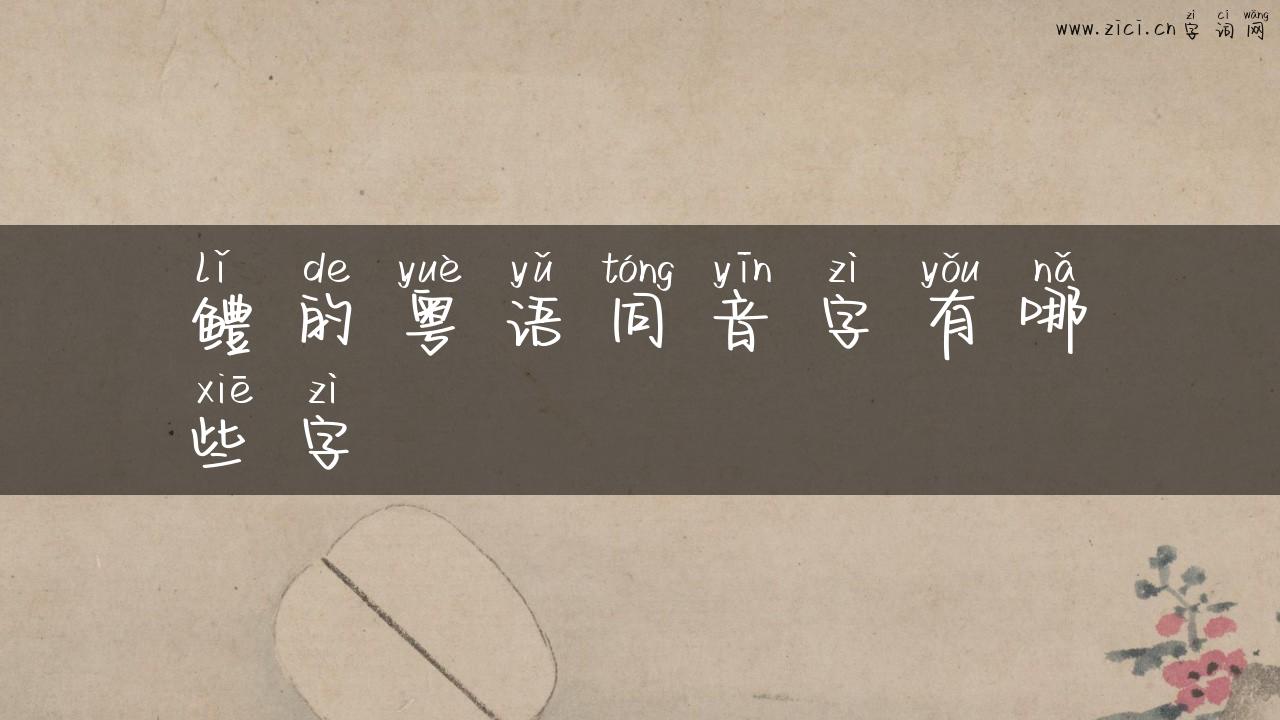 zì cí wǎng
www.zici.cn字词网
lǐ de yuè yǔ tóng yīn zì yǒu nǎ
鳢的粤语同音字有哪
xiē zì
些字